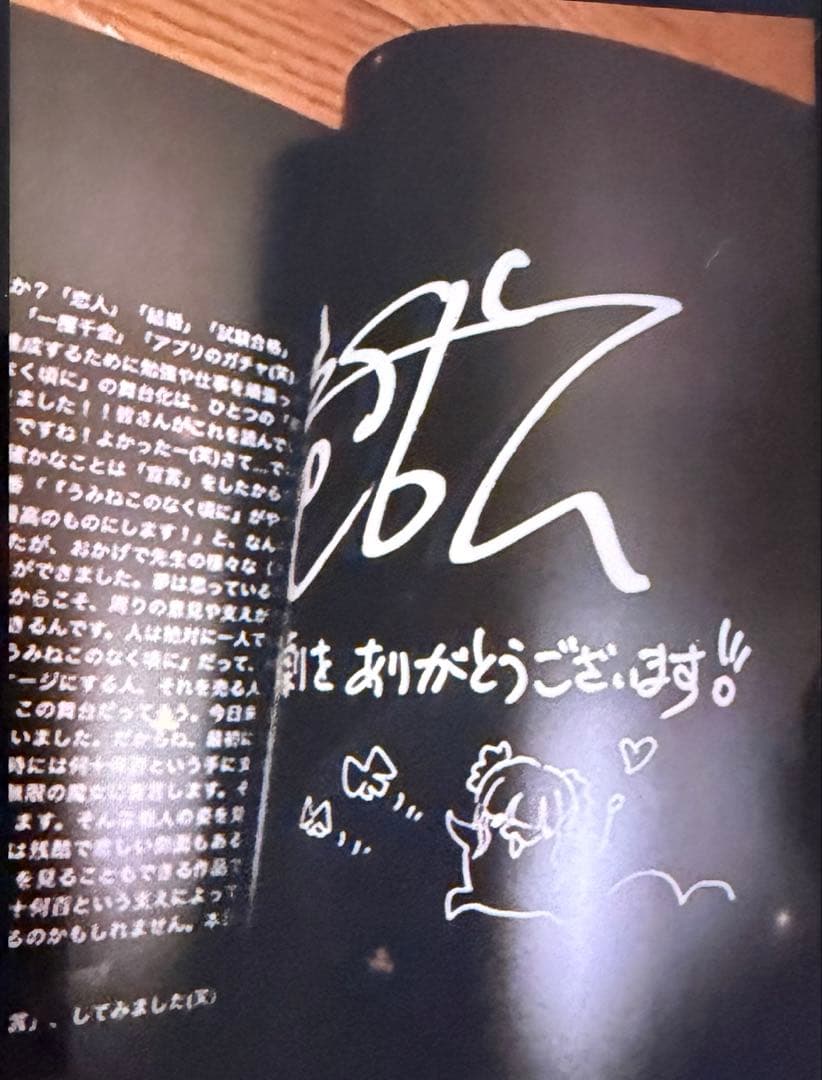 か?「恋人」「結婚」「試験合格」
「一攫千金」「アプリのガチャ(笑)
達成するために勉強や仕事を頑張っ
なく頃に』の舞台化は、ひとつの「
ました!!皆さんがこれを読んで
ですね!よかったー(笑)さて…で
確かなことは「宣言」をしたから
「『うみねこのなく頃に』がや
最高のものにします!」と、なん
たが、おかげで先生の様々な(
ができました。夢は思っている
からこそ、周りの意見や支えが
きるんです。人は絶対に一人で
うみねこのなく頃に』だって、
ージにする人、それを売る人
この舞台だって う。今日ま
いました。だからね、最初に
時には何十何百という手に支
無限の魔女に宣言します。そ
ます。そんな
は残酷で悲しい もある
を見ることもできる作品で
十何百という支えによって
るのかもしれません。本
言」、してみました(笑)
劇をありがとうございます!!